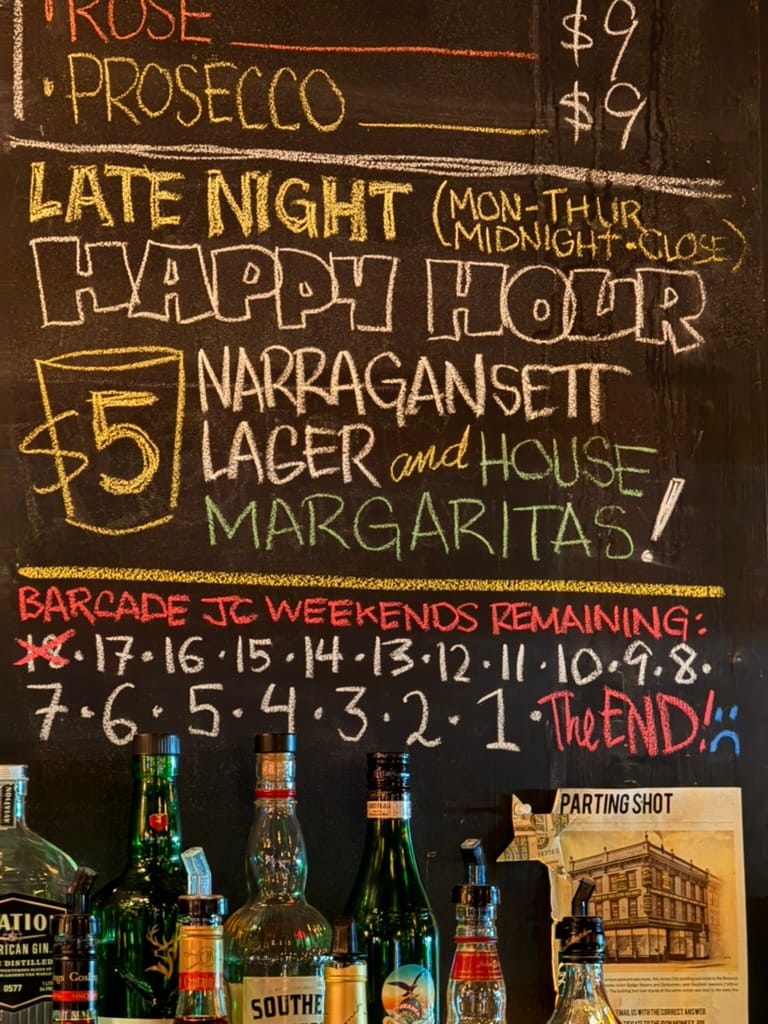 ROSE $9
· PROSECCO $9
LATE NIGHT (MON-THUR
MIDNIGHT-CLOSE)
HAPPY HOUR
$5 NARRAGANSETT
LAGER and HOUSE
MARGARITAS!
BARCADE JC WEEKENDS REMAINING:
18·17·16·15·14·13·12·11·10·9·8·
7·6·5·4·3·2·1·The END! :(
PARTING SHOT
AVIATION
RICAN GIN
DISTILLED
0577
SOUTHE
EMAIL US WITH THE CORRECT ANSWER